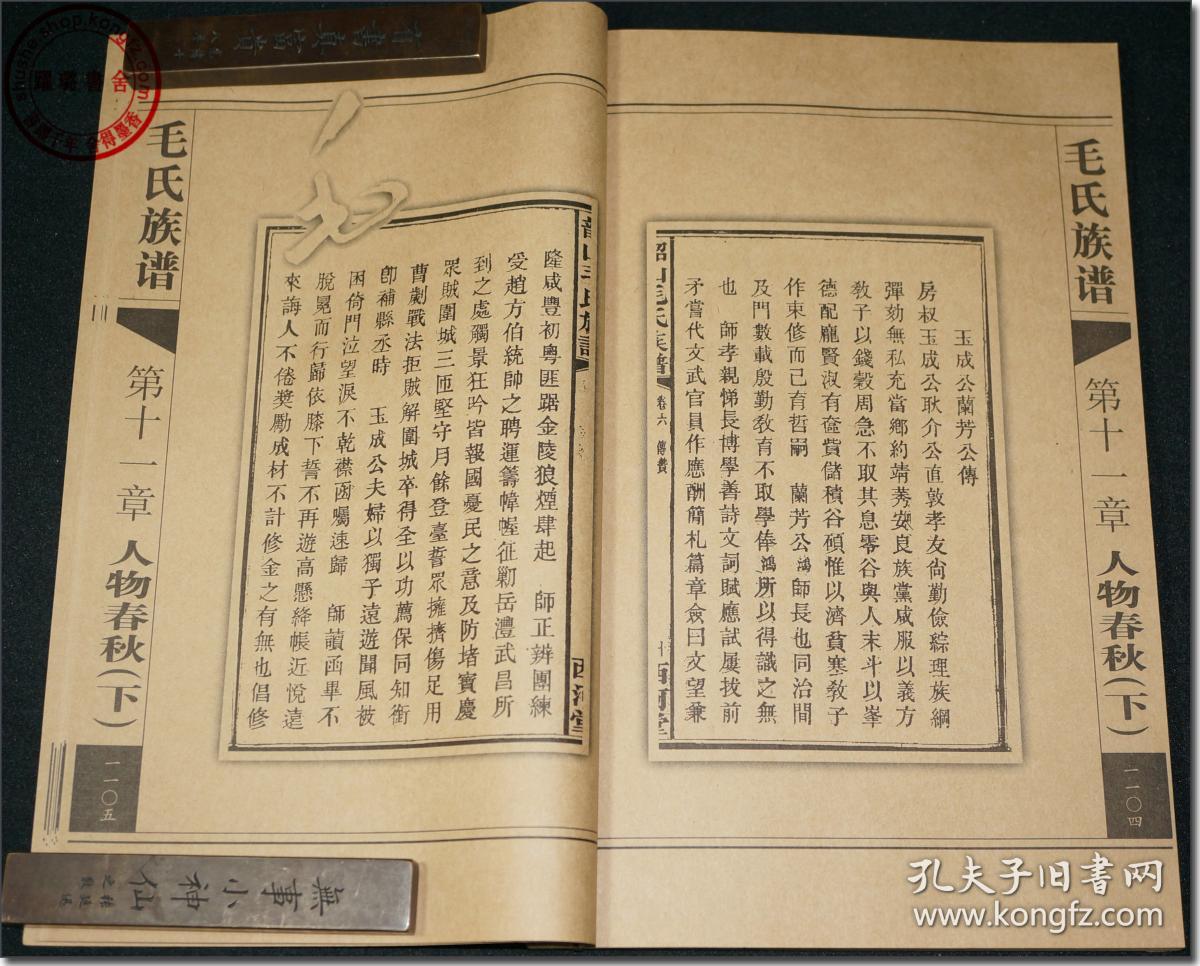 毛氏族谱
第十一章
人物春秋(下)
一一〇四
韶山毛氏族譜
卷六
傳贊
西河堂
玉成公蘭芳公傳
房叔玉成公耿介公直敦孝友尙勤儉綜理族綱
彈劾無私充當鄉約靖莠安良族黨咸服以義方
敎子以錢穀周急不取其息零谷與人末斗以峯
德配龐賢淑有奩貲儲積谷碩惟以濟貧寒敎子
作束修而己育哲嗣 蘭芳公鴻師長也同治間
及門數載殷勤敎育不取學俸鴻所以得識之無
也 師孝親悌長博學善詩文詞賦應試屢拔前
矛嘗代文武官員作應酬簡札篇章僉曰文望兼
隆咸豐初粵匪踞金陵狼煙肆起 師正辨團練
受趙方伯統帥之聘運籌幃幄征勦岳澧武昌所
到之處觸景狂吟皆報國憂民之意及防堵寶慶
眾賊圍城三匝堅守月餘登臺誓眾擁擠傷足用
曹劌戰法拒賊解圍城卒得全以功薦保同知銜
卽補縣丞時 玉成公夫婦以獨子遠遊聞風被
困倚門泣望淚不乾襟函囑速歸 師讀函畢不
脫冕而行歸依膝下誓不再遊高懸絳帳近悅遠
來誨人不倦奬勵成材不計修金之有無也倡修
毛氏族谱
第十一章
人物春秋(下)
一一〇五
有書真富貴
無事小神仙
羅瓏書舍
shushe.shop.kongfz.com
孔夫子旧书网
www.kongfz.com